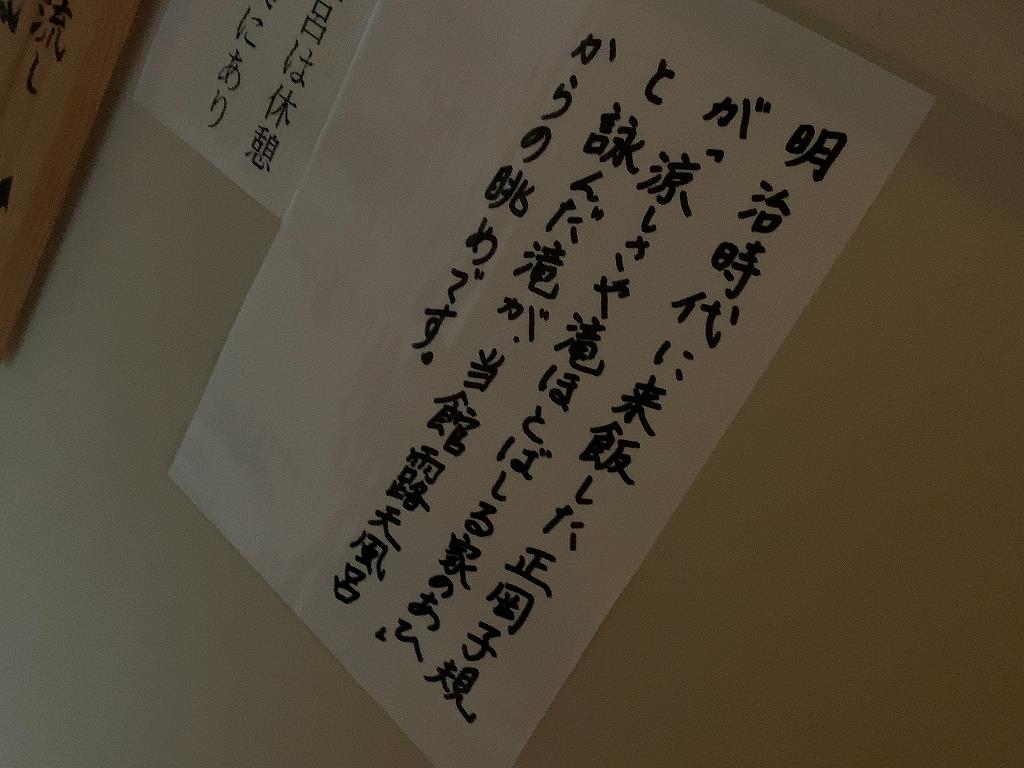 明治時代に来飯した正岡子規
が、涼しさや滝ほとばしる家のあひ、
と詠んだ滝が、当館露天風呂
からの眺めです。
呂は休憩
にあり
流し